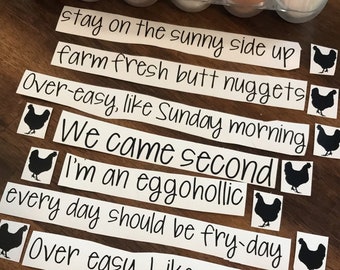 stay on the sunny side up
farm fresh butt nuggets
Over-easy, like Sunday morning
We came second
I'm an eggoholic
every day should be fry-day
Over easy, like